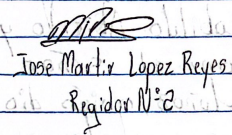 Jose Martir Lopez Reyes
Regidor N:2